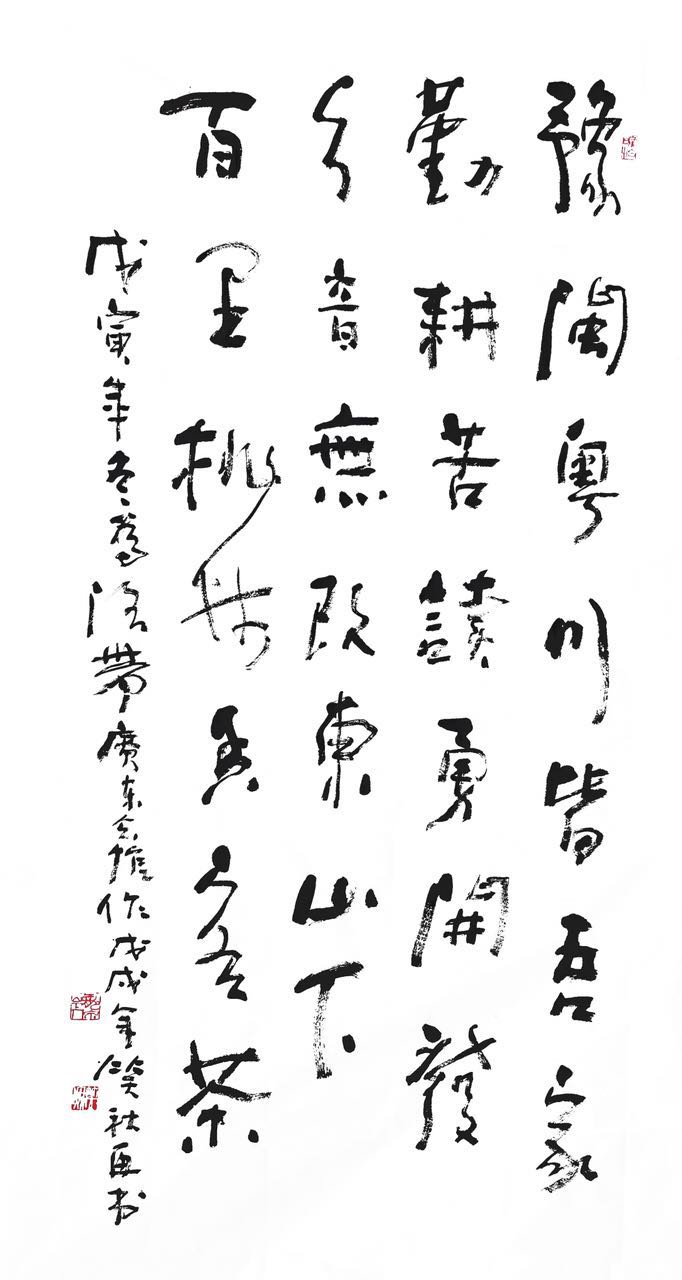 豫閩粵川皆吾家
勤耕苦讀勇開發
乡音無改東山下
百里桃香客茶
戊寅年冬洛帶廣东会館作戊戌年秋再书